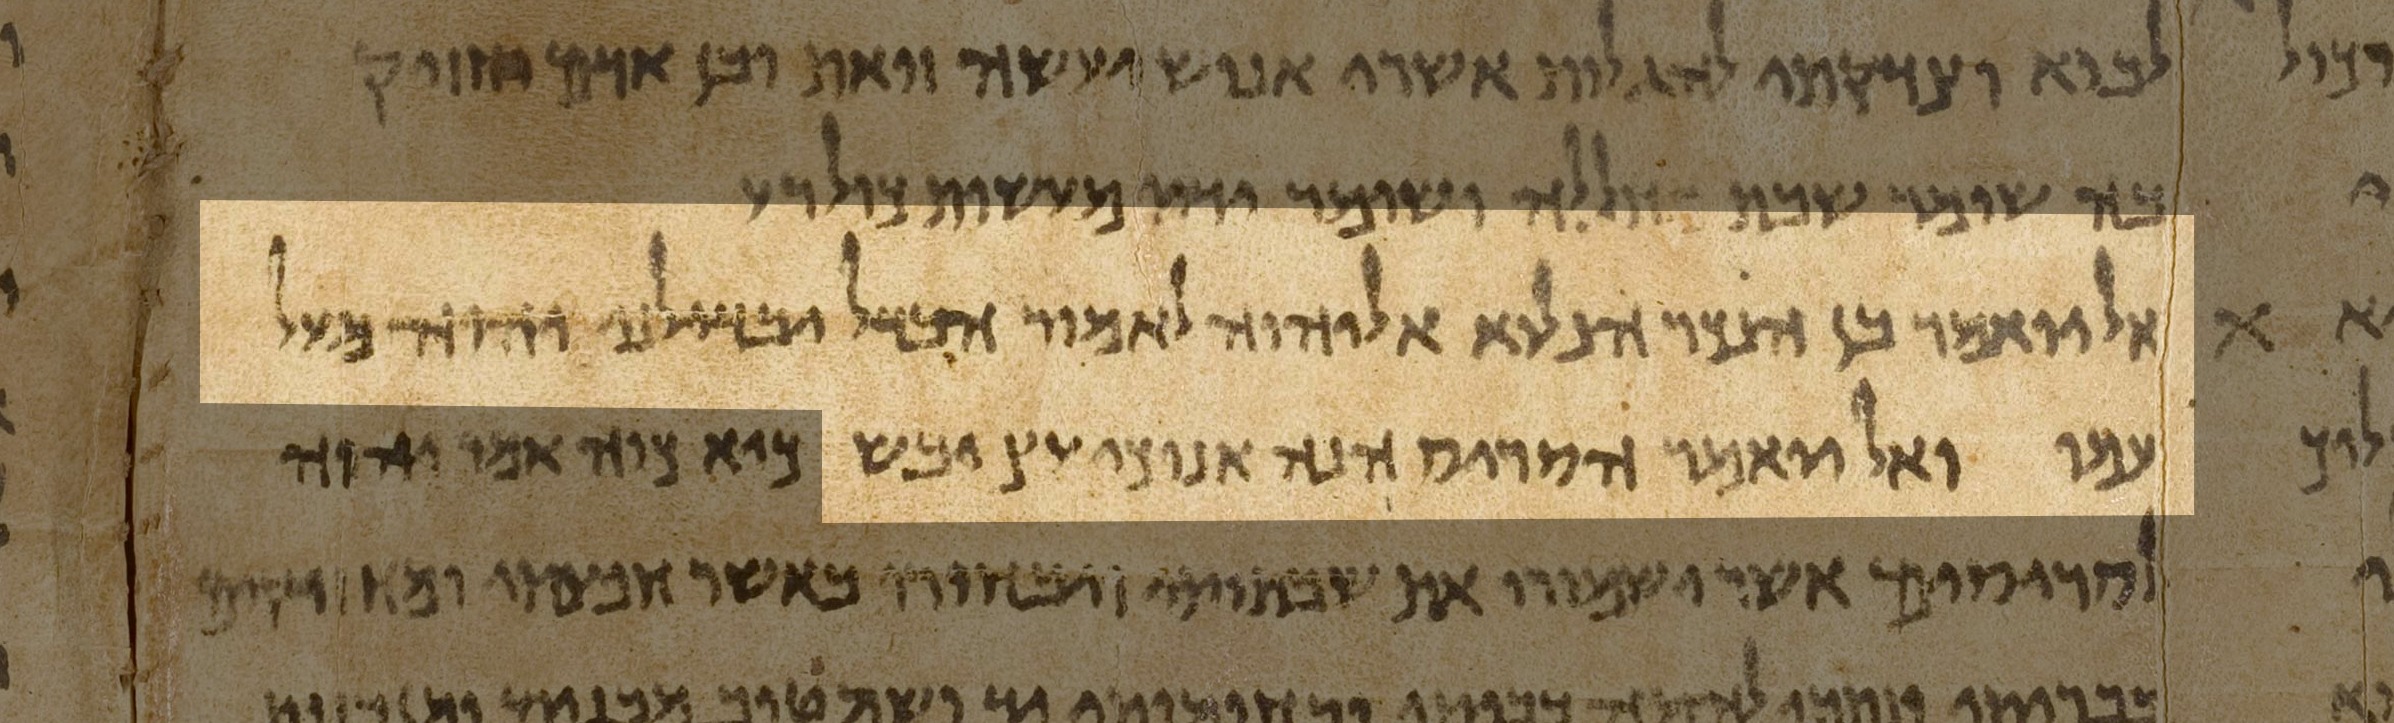 לבוא וצדקתי להגלות אשרי אנוש יעשה זואת ובן אדם יחזיק
בה שומר שבת מחללה ושומר ידיו מעשות כול רע
אל יואמר בן הנכר הנלוא אל יהוה לאמור הבדל יבדילני יהוה מעל
עמו ואל יואמר הסריס הנה אנוכי עץ יבש כיא כוה אמר יהוה
לסריסים אשר ישמורו את שבתותי ויבחורו באשר חפצתי
בבריתי ונתתי להמה בביתי ובחומותי יד ושם טוב מבנים ומבנות